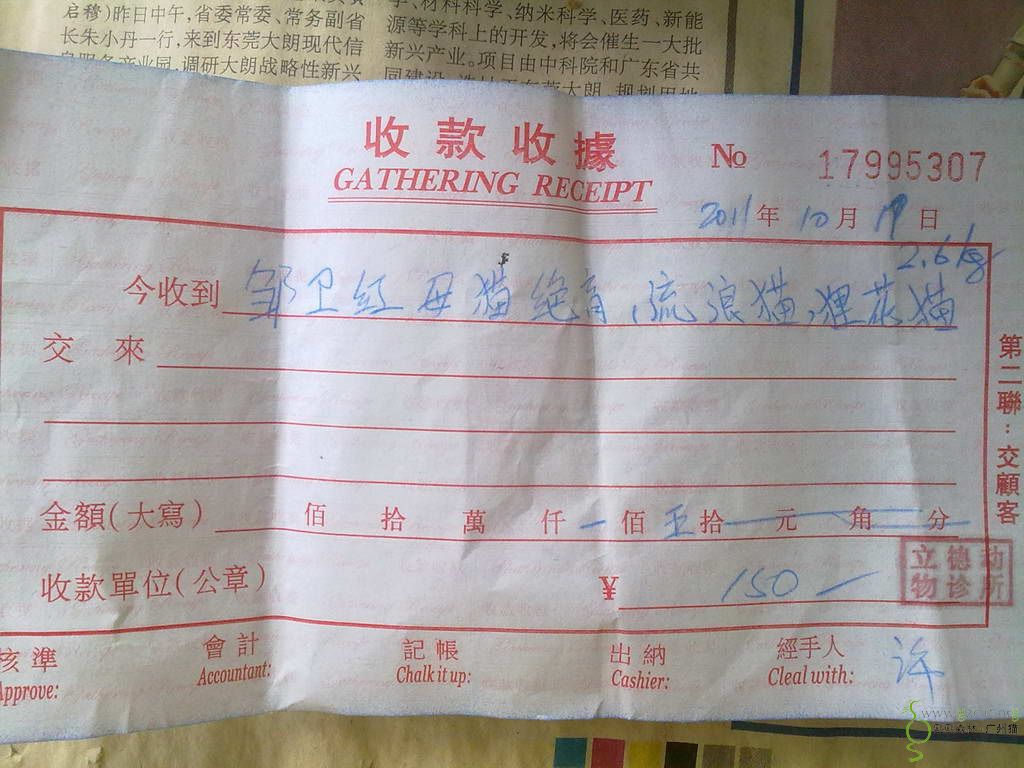 启穆)昨日中午,省委常委、常务副省
长朱小丹一行,来到东莞大朗现代信
息服务产业园,调研大朗战略性新兴
学、材料科学、纳米科学、医药、新能
源等学科上的开发,将会催生一大批
新兴产业。项目由中科院和广东省共
收款收據
GATHERING RECEIPT
No 17995307
2011年10月19日
2.6kg
今收到 邹卫红母猫绝育,流浪猫,狸花猫
交來
金額(大寫) 佰 拾 萬 仟 一佰 五拾 元 角 分
收款單位(公章) ¥ 150
立德动
物诊所
核準 會計 記帳 出納 經手人 许
Approve: Accountant: Chalk it up: Cashier: Cleal with:
第二聯:交顧客
广州猫